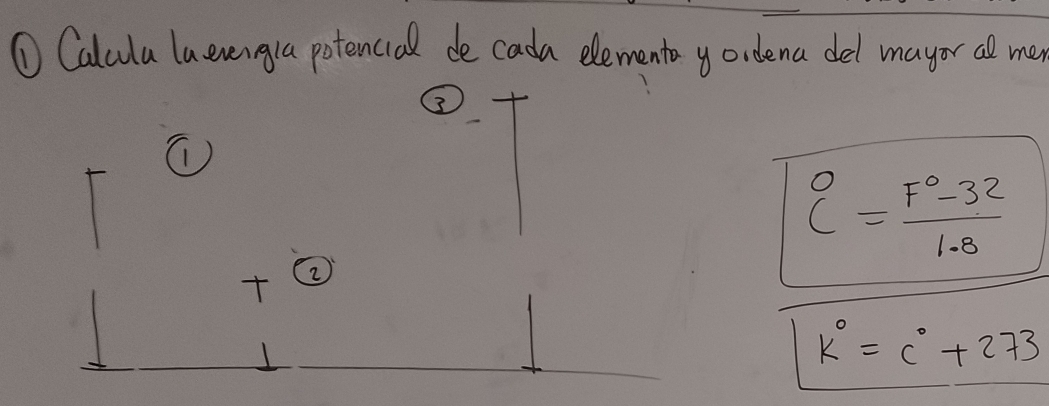 ① Calcula la energia potencial de cada elemento y ordena del mayor al
③
①
②
C° = F° - 32 / 1.8
K° = C° + 273